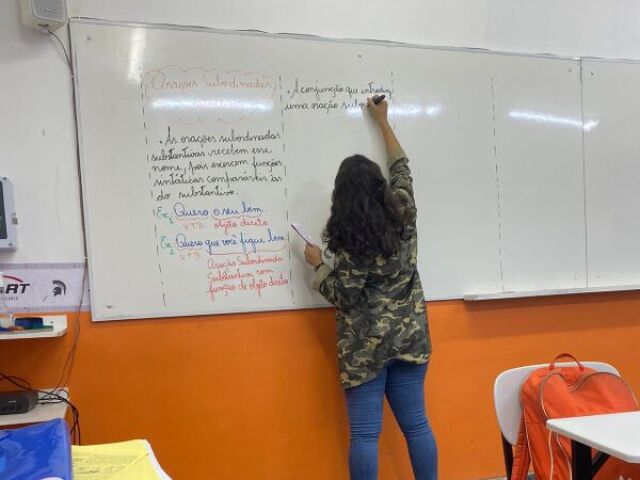 Orações Subordinadas
• As orações subordinadas
substantivas recebem esse
nome, pois exercem funções
sintáticas comparáveis às
do substantivo.
Ex 1 Quero o seu bem.
V.T.D. objeto direto
Ex 2 Quero que você fique bem.
V.T.D.
Oração Subordinada
Substantiva com
função de objeto direto
• A conjunção que introduz
uma oração
RT